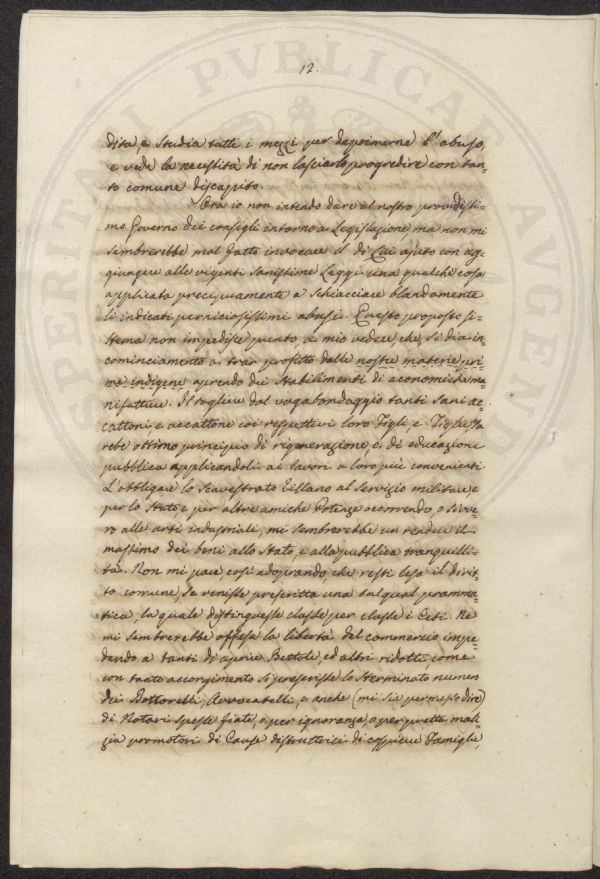 12.
dita, e studia tutti i mezzi per deprimerne l'abuso,
e vede la necessità di non lasciarlo progredire con tan=
to comune discapito.
Ora io non intendo dare al nostro providissi=
mo Governo dei consigli intorno a Legislazione ma non mi
sembrerebbe mal fatto invocare il di Lui ajuto con ag=
giungere alle vigenti sanissime Leggi una qualche cosa
applicata precipuamente a schiacciare blandamente
li indicati perniciosissimi abusi. Questo proposto si=
stema non impedisce punto, a mio vedere, che si dia in=
cominciamento a trar profitto dalle nostre materie pri=
me indigene aprendo dei Stabilimenti di economiche ma=
nifatture. Il togliere dal vagabondaggio tanti sani ac=
cattoni, e accattone coi respettivi loro Figli, e Figlie sa=
rebe ottimo principio di rigenerazione, e di educazione
pubblica applicandoli ai lavori a loro più convenienti.
L'obbligare lo scavestrato Villano al servizio militare e
per lo Stato e per altre amiche Potenze occorrendo, o sivve=
ro alle arti industriali, mi sembrerebbe un rendere il
massimo dei beni allo Stato, e alla pubblica tranquilli=
tà. Non mi pare, così adoprando, che resti leso il dirit=
to comune, se venisse prescritta una tal qual pramma=
tica, la quale distinguesse classe per classe i Ceti. Ne
mi sembrerebbe offesa la libertà del commercio impe=
dendo a tanti di aprire Bettole, ed altri ridotti, come
con tanto accorgimento si prescrisse lo sterminato numero
dei Dottorelli, Avvocatelli, o anche (mi sia permesso dire)
di Notari spesse fiate, o per ignoranza, o per pretta mali=
zia promotori di Cause distruttrici di cospicue Famiglie,
SPERITATI PVBLICAE AVGENDAE